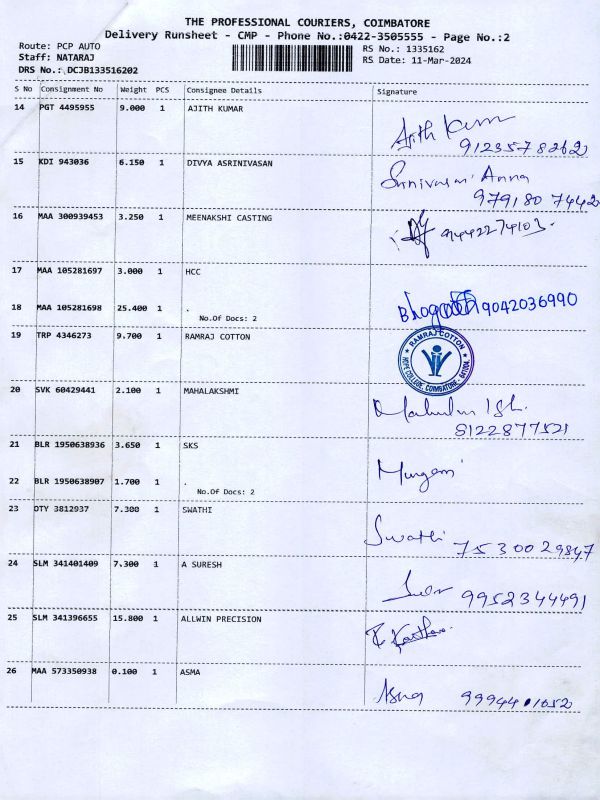 THE PROFESSIONAL COURIERS, COIMBATORE
Delivery Runsheet - CMP - Phone No.:0422-3505555 - Page No.:2
Route: PCP AUTO RS No.: 1335162
Staff: NATARAJ RS Date: 11-Mar-2024
DRS No.: DCJB133516202
S No Consignment No Weight PCS Consignee Details Signature
14 PGT 4495955 9.000 1 AJITH KUMAR Ajith Kumar
9123578262
15 KDI 943036 6.150 1 DIVYA ASRINIVASAN Srinivasan Anna
979180 7442
16 MAA 300939453 3.250 1 MEENAKSHI CASTING 9442274103
17 MAA 105281697 3.000 1 HCC
18 MAA 105281698 25.400 1 . 9042036990
No.Of Docs: 2
19 TRP 4346273 9.700 1 RAMRAJ COTTON
RAMRAJ COTTON
HOPE COLLEGE, COIMBATORE
20 SVK 60429441 2.100 1 MAHALAKSHMI
8122877521
21 BLR 1950638936 3.650 1 SKS Murgan
22 BLR 1950638907 1.700 1 .
No.Of Docs: 2
23 OTY 3812937 7.300 1 SWATHI Swathi 7530029847
24 SLM 341401409 7.300 1 A SURESH 9952344491
25 SLM 341396655 15.800 1 ALLWIN PRECISION
26 MAA 573350938 0.100 1 ASMA Asma 9994401052